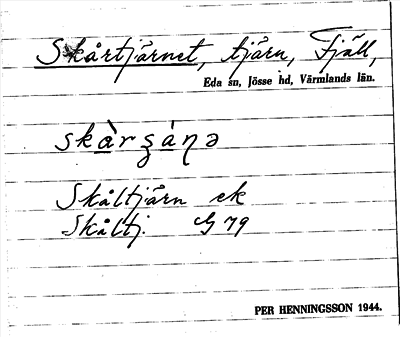 Skårtjärnet, tjärn, Fjäll,
Eda sn, Jösse hd, Värmlands län.
Skåltjärn ek
Skåltj. G 79
PER HENNINGSSON 1944.